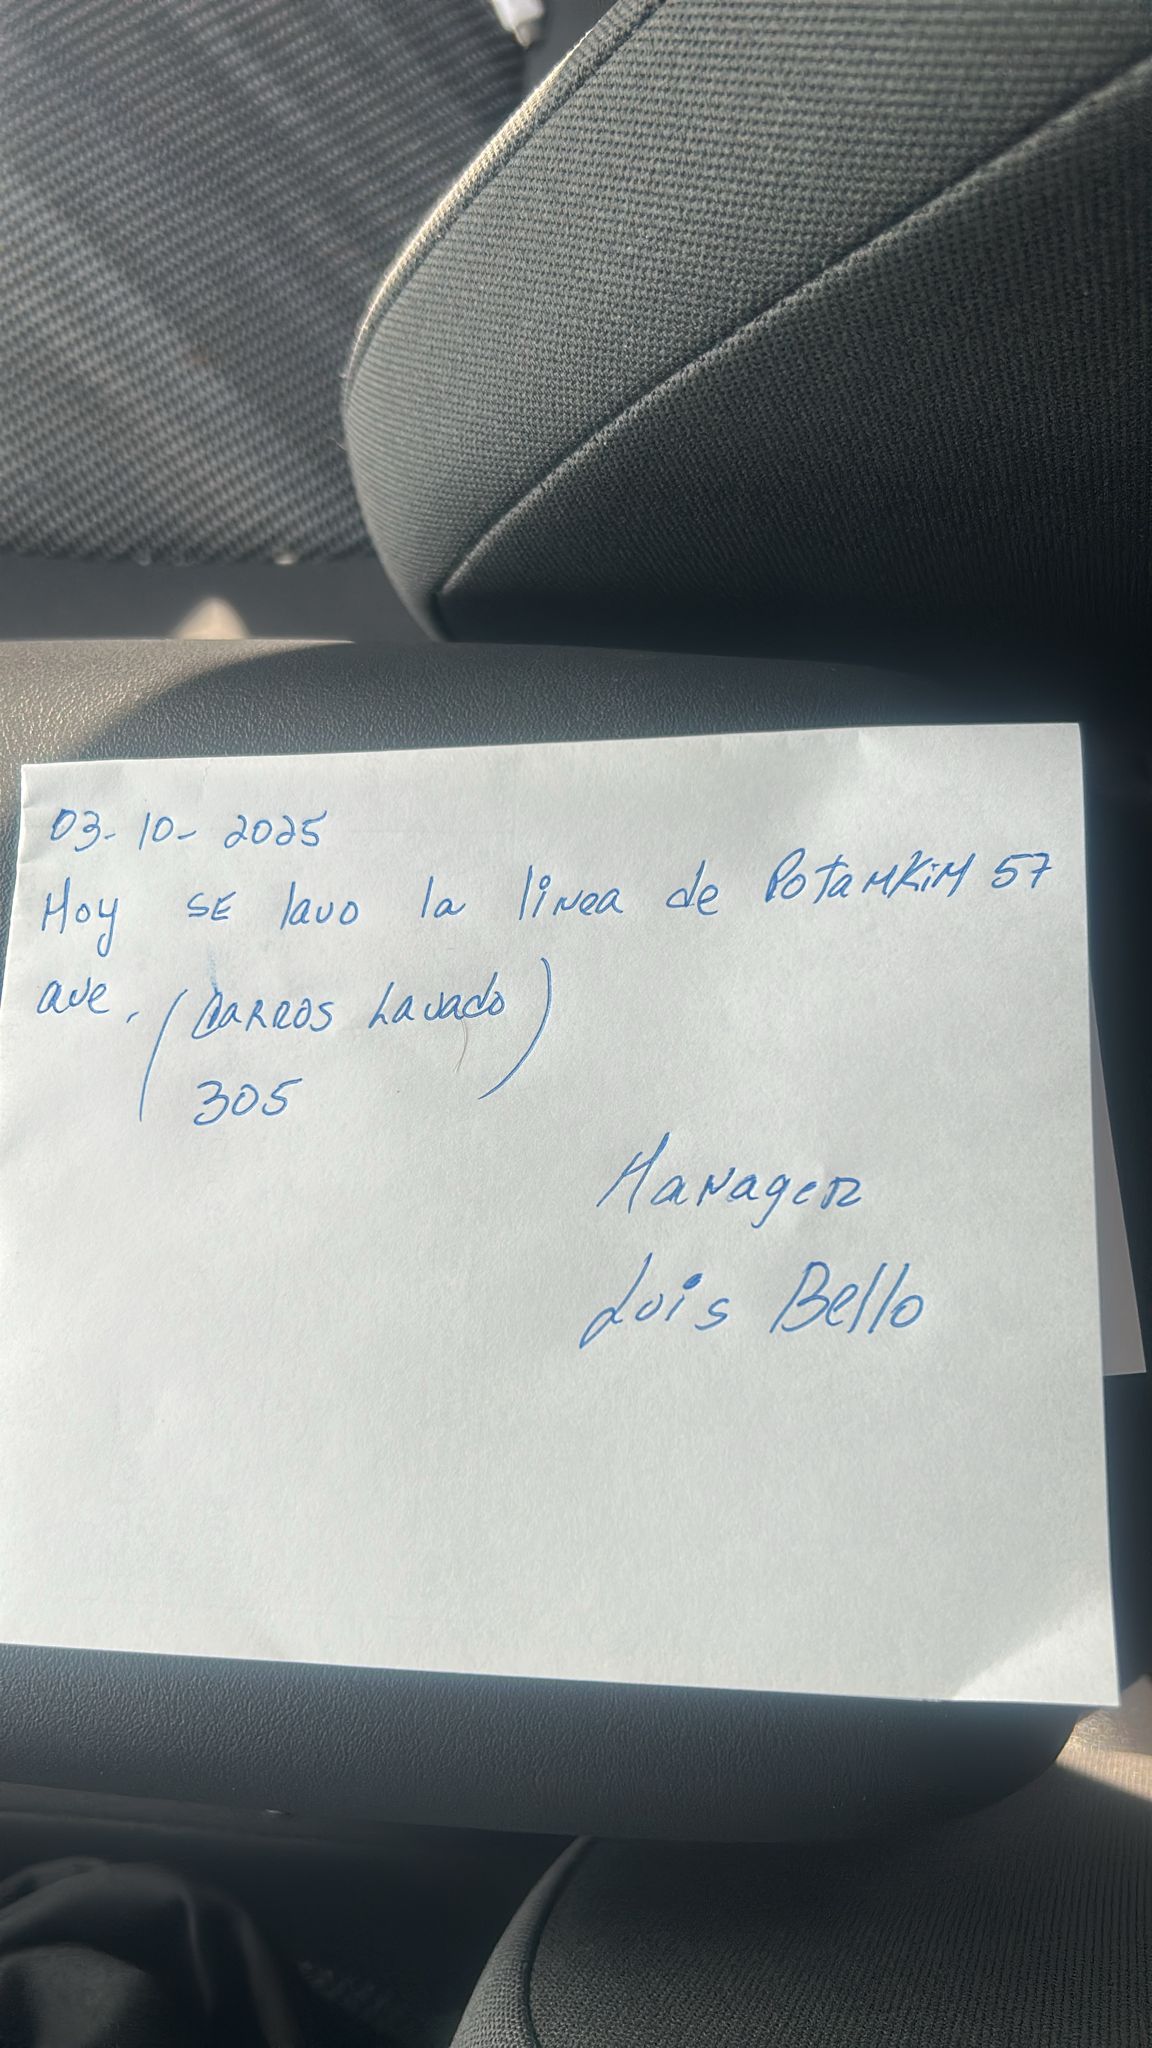 03-10-2025
Hoy SE lavo la linea de PotamKiM 57
ave. (CARROS Lavado)
305
Manager
Luis Bello